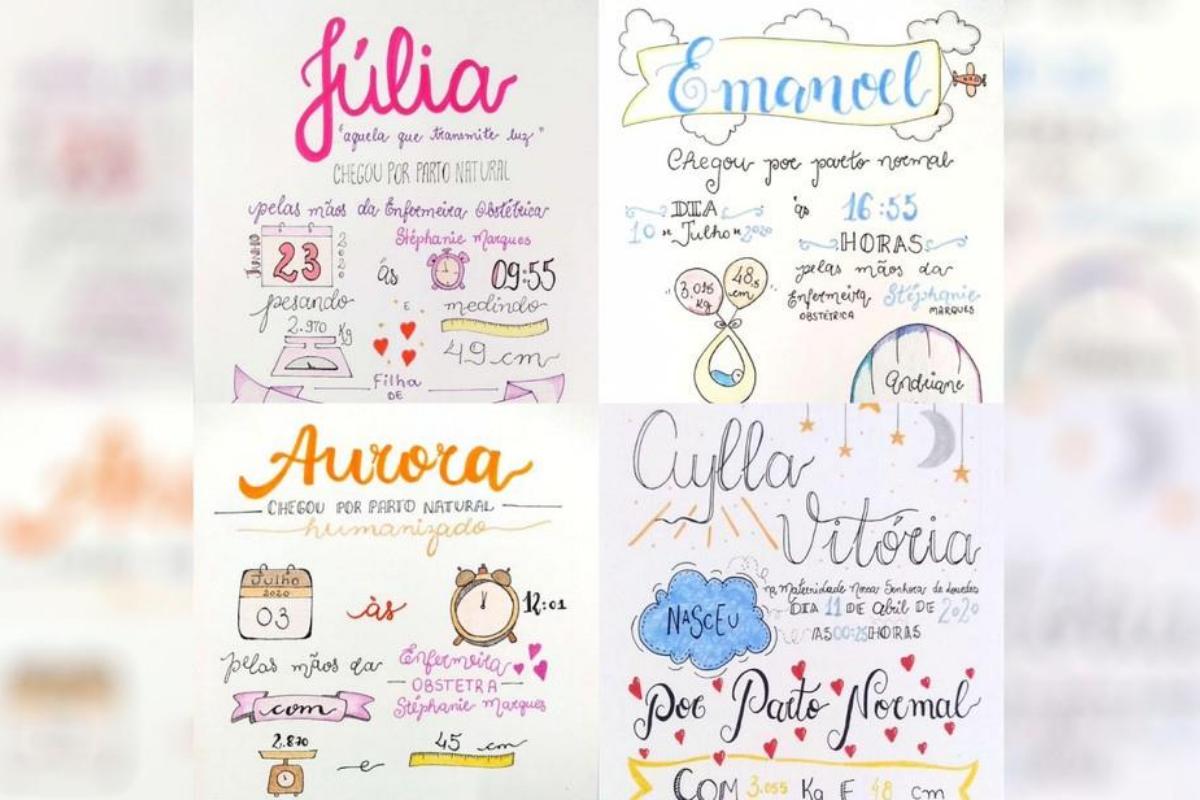 Júlia
"aquela que transmite luz"
CHEGOU POR PARTO NATURAL
pelas mãos da Enfermeira Obstétrica
Stéphanie Marques
JUNHO 23 2020 às 09:55
pesando E medindo
2.970 Kg
49 cm
Filha
DE
Emanoel
Chegou por parto normal
DIA às 16:55
10 de Julho de 2020
HORAS
pelas mãos da
3.015 Kg 48,5 cm
Enfermeira Stéphanie
OBSTÉTRICA MARQUES
Andriane
Aurora
CHEGOU POR PARTO NATURAL
humanizado
Julho
2020
03 às 12:01
pelas mãos da Enfermeira
OBSTETRA
com Stéphanie Marques
2.870 e 45 cm
Cuylla
Vitória
na Maternidade Nossa Senhora de Lourdes
NASCEU DIA 11 DE abril DE 2020
AS 00:25 HORAS
Por Parto Normal
COM 3.055 Kg E 48 cm